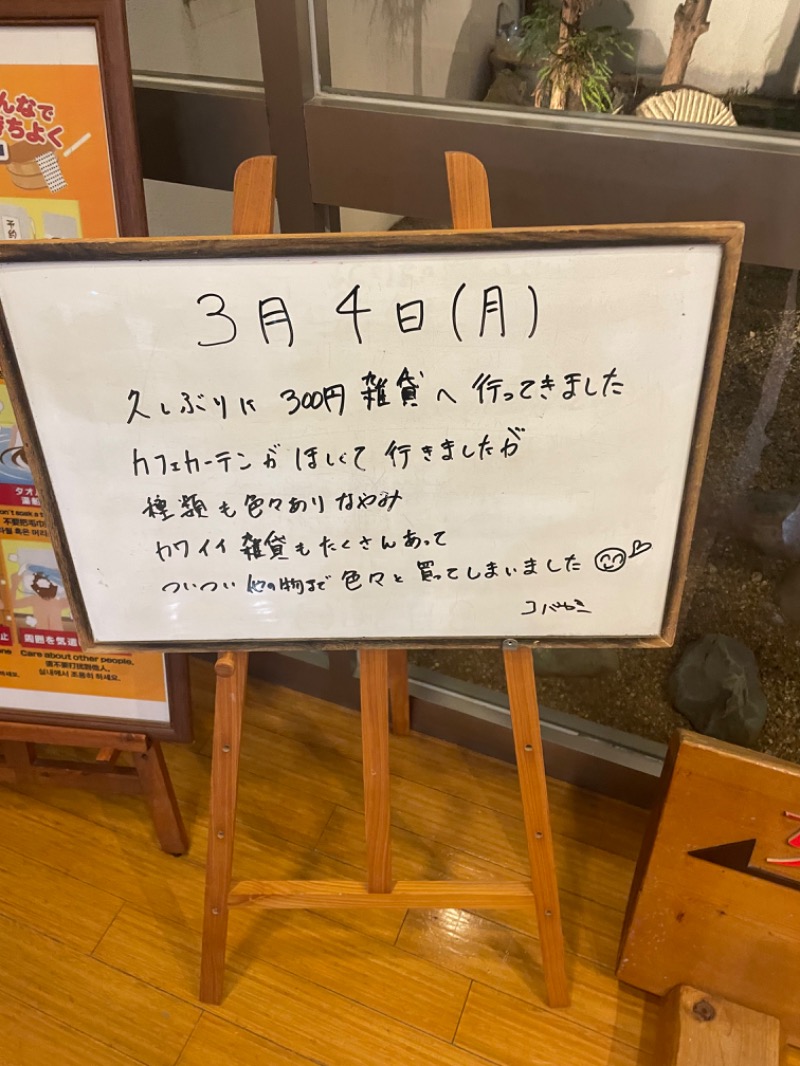 んなで
持ちよく
予約
3月4日(月)
久しぶりに 300円雑貨へ 行ってきました
カフェカーテンが ほしくて 行きましたが
種類も色々あり なやみ
カワイイ 雑貨も たくさんあって
ついつい 他の物まで 色々と 買ってしまいました
コバヤシ
タオル
湯船
不要把毛巾
周囲を気遣
Care about other people.